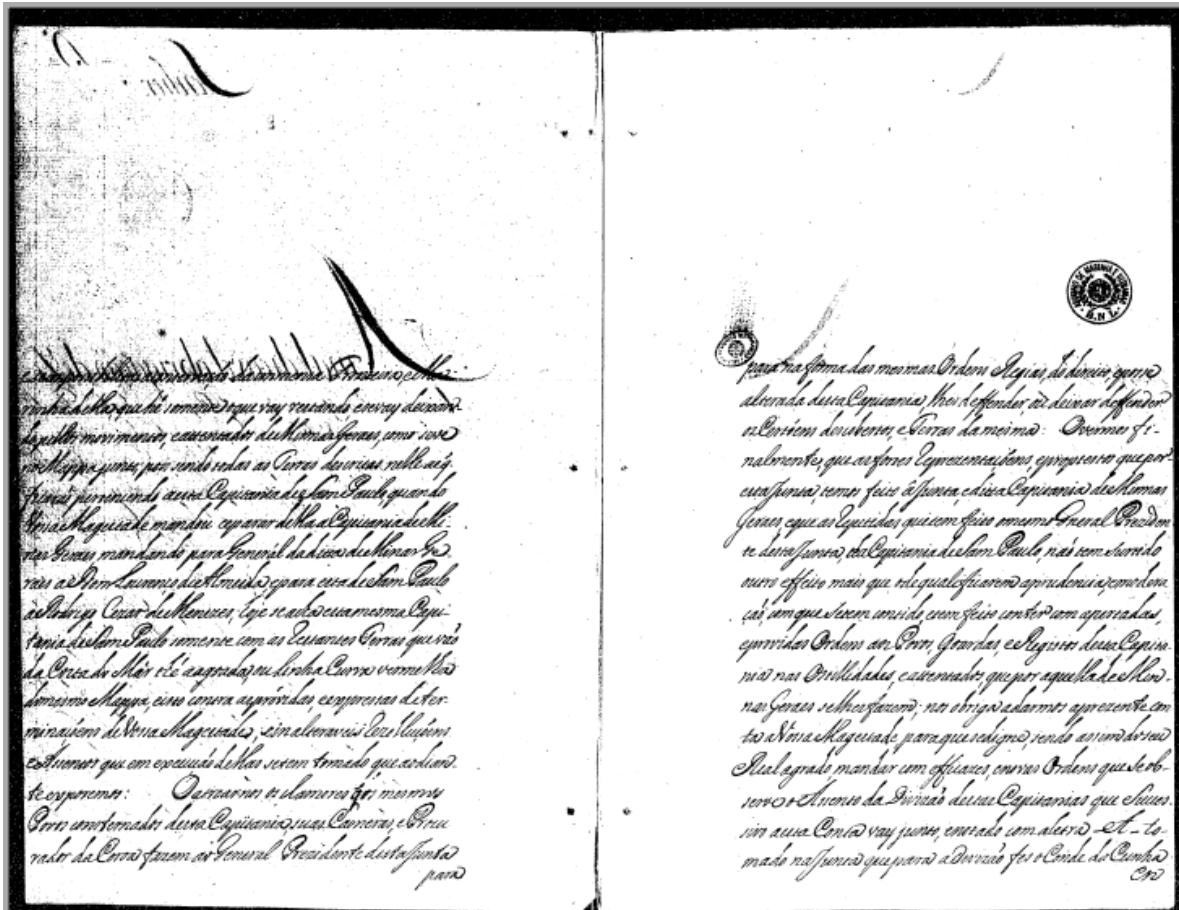 rinha della, que hé somente o que vay restando e se vay deixan-
do pellos movimentos, e attentados de Minnas Geraes, como se ve
no Mappa junto, pois sendo todas as Terras descritas nelle
pertencendo a esta Capitania de Sam Paulo, quando
Vossa Magestade mandou separar della a Capitania de Mi-
nas Geraes mandando para General da dita de Minas Ge-
raes a Dom Lourenço de Almeida, e para esta de Sam Paulo
a Rodrigo Cezar de Menezes, hoje se acha esta mesma Capi-
tania de Sam Paulo somente com as restantes Terras que vão
da Costa do Már thé a agoada, ou Linha Curva vermelha
do mesmo Mappa, e isto contra as próvidas, e expressas deter-
minaçoens de Vossa Magestade, e inalteraveis Rezoluçoens
e Assentos que em execução dellas se tem tomado que ao dian-
te exporemos: Os clamores que os mesmos
Povos consternados desta Capitania, suas Cameras, e Procu
rador da Coroa fazem ao General Prezidente desta Junta
para
para na forma das mesmas Ordens Regias, de direito, e posse
alterada desta Capitania, lhes deffender ou deixar deffender
os Certoens descubertos, e Terras da mesma: Overmos fi-
nalmente, que as fortes Reprezentaçoens, e propostas que por
esta Junta temos feito á Junta, e dita Capitania de Minnas
Geraes e que as repetidas que tem feito o mesmo General Preziden
te desta Junta, e da Capitania de Sam Paulo, não tem surtido
outro effeito mais que o de qualificarem a prudencia, e modera
ção, com que se tem contido, e tem feito conter com apertadas,
e providas Ordens aos Povos, Goardas e Registos desta Capita-
nia nas Ostilidades, e attentados, que por aquella de Min-
nas Geraes se lhes fazem; nos obriga a darmos a prezente con
ta a Vossa Magestade para que se digne, sendo assim do seu
Real agrado mandar com efficazes, e novas Ordens que se ob-
serve o Assento da Divizão destas Capitanias que suces-
sivo a esta Conta vay junto, e notado com a letra - A - to-
mado na Junta que para a divizão fes o Conde da Cunha